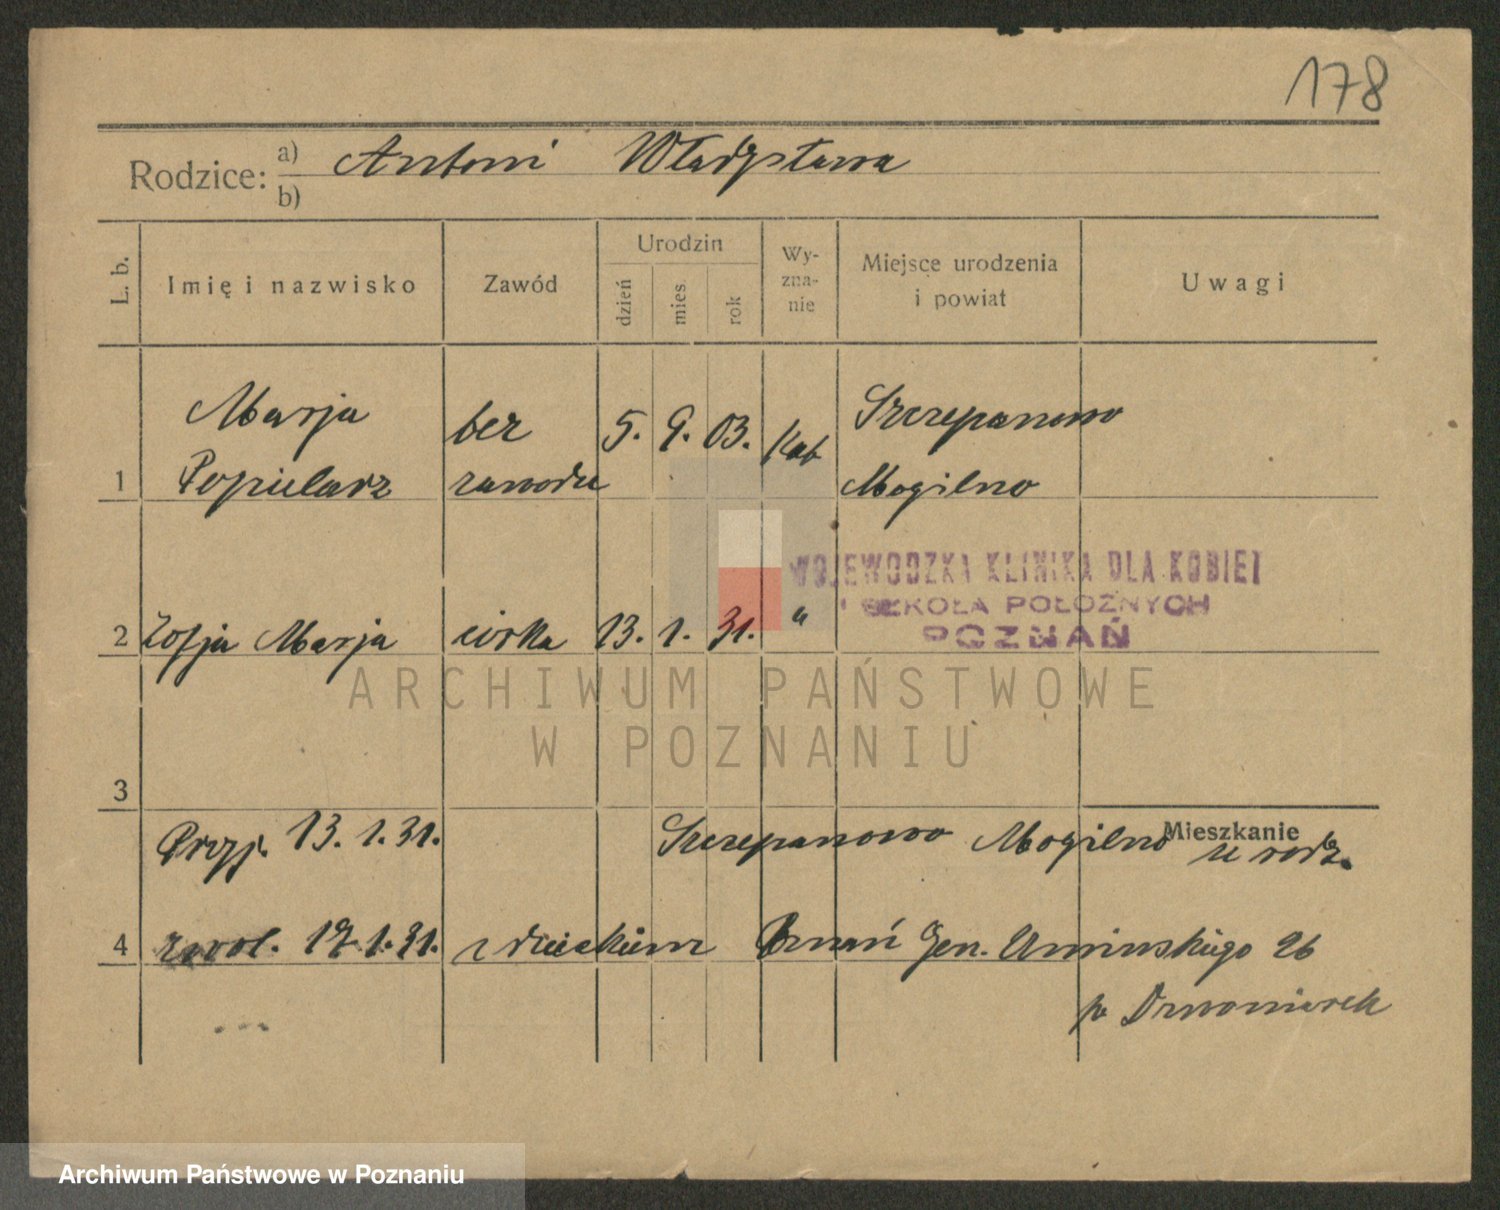 178
Rodzice: a) Antoni Władysława
b)
L. b. Imię i nazwisko Zawód Urodzin dzień mies. rok Wy-zna-nie Miejsce urodzenia i powiat Uwagi
Marja bez 5. 9. 03. Kat Szczepanowo
1 Popielarz zawodu Mogilno
WOJEWÓDZKA KLINIKA DLA KOBIET
I SZKOŁA POŁOŻNYCH
2 Zofja Marja córka 13. 1. 31. "
POZNAŃ
ARCHIWUM PAŃSTWOWE
W POZNANIU
3
Mieszkanie
Przyj. 13. 1. 31. Szczepanowo Mogilno u rodz.
4 zwol. 17. 1. 31. z dzieckiem Poznań Gen. Umińskiego 26
p.
Archiwum Państwowe w Poznaniu